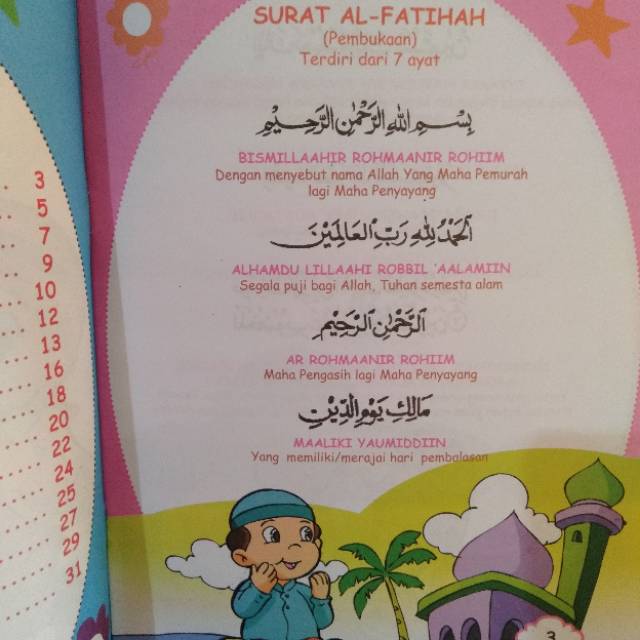 3
5
7
9
10
12
13
16
18
20
22
24
25
27
29
31
SURAT AL-FATIHAH
(Pembukaan)
Terdiri dari 7 ayat
بِسْمِ اللهِ الرَّحْمٰنِ الرَّحِيْمِ
BISMILLAAHIR ROHMAANIR ROHIIM
Dengan menyebut nama Allah Yang Maha Pemurah
lagi Maha Penyayang
اَلْحَمْدُ لِلّٰهِ رَبِّ الْعَالَمِيْنَ
ALHAMDU LILLAAHI ROBBIL 'AALAMIIN
Segala puji bagi Allah, Tuhan semesta alam
الرَّحْمٰنِ الرَّحِيْمِ
AR ROHMAANIR ROHIIM
Maha Pengasih lagi Maha Penyayang
مَالِكِ يَوْمِ الدِّيْنِ
MAALIKI YAUMIDDIIN
Yang memiliki/merajai hari pembalasan
3